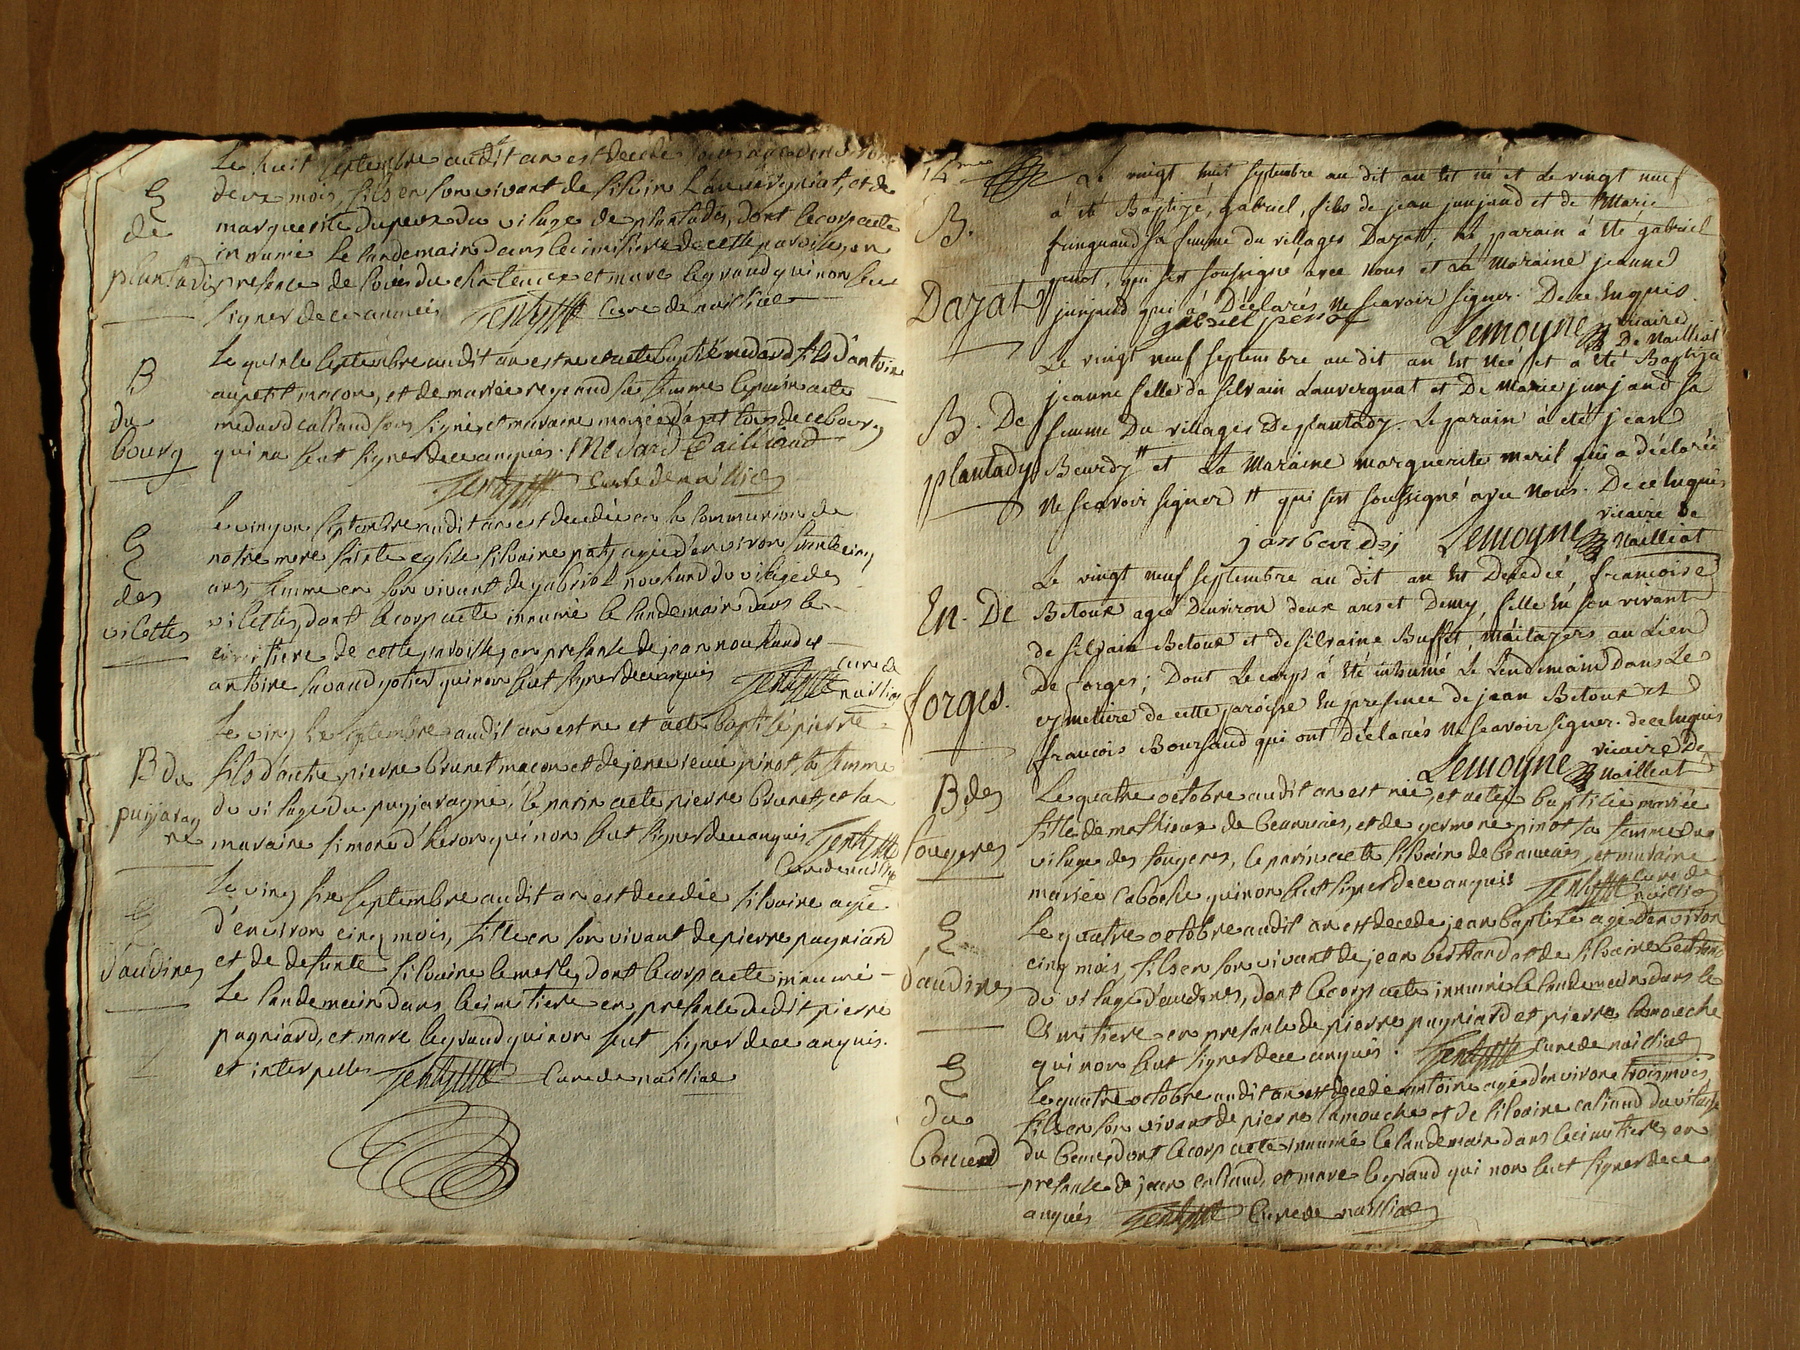 Le huit septembre audit an est decede
deux mois, fils en son vivant de silvin Lauvergniat, et de
marguerite dupeux du vilage de plantadis, dont le corp aeté
innumé le landemain dans le cimitiere de cette paroisse, en
presense de loüis du chateneex et marc legrand qui non seu
signer de ce anquis Curé de naillac
E
de
plantadis
Le quinse septembre audit an est ne et aeté baptisé medard fils d'antoine
aupetit maçon, et de mariée regeaud sa femme le parin aeté
medard caillaud sous signé, et maraine mariée dapt tous de ce bourg
qui na seut signer de ce anquis. Medard Cailliaud
Curé de naillac
B
du
bourg
Le vingt un septembre audit an est decedée en la communion de
notre mere sainte eglise silvaine paty agée d'environ cinq
ans, femme en son vivant de gabriel nouhaud du vilage des
vilettes, dont le corp aeté innumé le landemain dans le
cimitiere de cette paroisse, en presense de jean nouhaud et
antoine savaud potier qui non seut signer de ce anquis
Curé de
naillac
E
des
vilettes
Le vingt six septembre audit an est ne et aeté baptisé pierre
fils d'autre pierre brunet maçon et de jenevieuie pinot sa femme
du vilage du puyjaragne, le parin aeté pierre brunet, et la
maraine simone d'heron qui non seut signer de ce anquis
Curé de naillac
B du
puyjarag
ne
Le vingt six septembre audit an est decedée silvaine agée
d'environ cinq mois, fille en son vivant de pierre pagniard
et de defunte silvaine lemesle, dont le corp aeté innumé
Le landemain dans le cimitiere en presense dudit pierre
pagniard, et marc legraud qui non seut signer de ce anquis.
et interpellés Curé de naillac
E
d'audines
14me
Le vingt huit septembre au dit an Est né et Le vingt neuf
à été Baptizé, gabriel, fils de jean junjaud et de Marie
sa femme du villages Dazat; Le parain à été gabriel
pinot, qui sest soussigné avec nous et La Maraine jeanne
junjaud qui à Déclarés Ne scavoir signer. De ce Enquis.
gabriel
Lemoyne vicaire
De Nailliat
B.
Dazat
Le vingt neuf septembre au dit an Est née et à été Baptizée
jeanne fille de silvain Lauvergnat et De Marie junjaud sa
femme Du villages De plantady. Le parain à été jean
Beurdy # et La Maraine marguerite meril qui a déclarée
Ne scavoir signer # qui sest soussigné avec Nous. De ce Enquis
Lemoyne vicaire de
Nailliat
B. De
plantady
Le vingt neuf septembre au dit an Est Decedée, francoise
Betoux agée Denviron deux ans et Demy, fille En son vivant
de silvain Betoux et de silvaine Buffet, maitayers au Lieu
De forges; Dont Le corps à Eté inhumé Le Lendemain Dans Le
cymetiere de cette paroisse En presence de jean Betoux et
francois Boursaud qui ont Déclarés Ne scavoir signer. de ce Enquis
Lemoyne vicaire De
Nailliat
En. De
forges.
Le quatre octobre audit an est née, et aeté baptisée mariée
fille de mathieux de beauvais, et de germene pinot sa femme du
vilage des fougeres, le parin aeté silvain de beauvais, et maraine
mariée caboche qui non seut signer de ce anquis
Curé de
naillac
B des
fougeres
Le quatre octobre audit an est decede jean baptiste agé denviron
cinq mois, fils en son vivant de jean bertrand et de silvaine
du vilage d'audines, dont le corp aeté innumé le landemain dans le
Cimitiere en presense de pierre pagniard et pierre lamouche
qui non seut signer de ce anquis. Curé de naillac
E
d'audines
Le quatre octobre audit an est decede antoine agé d'environ trois mois,
fils en son vivant de pierre lamouche et de silvaine caliaud du vilage
du dont le corp aeté innumé le landemain dans le cimitiere, en
presense de jean caliaud, et marc legraud qui non seut signer de ce
anquis Curé de naillac
E
du